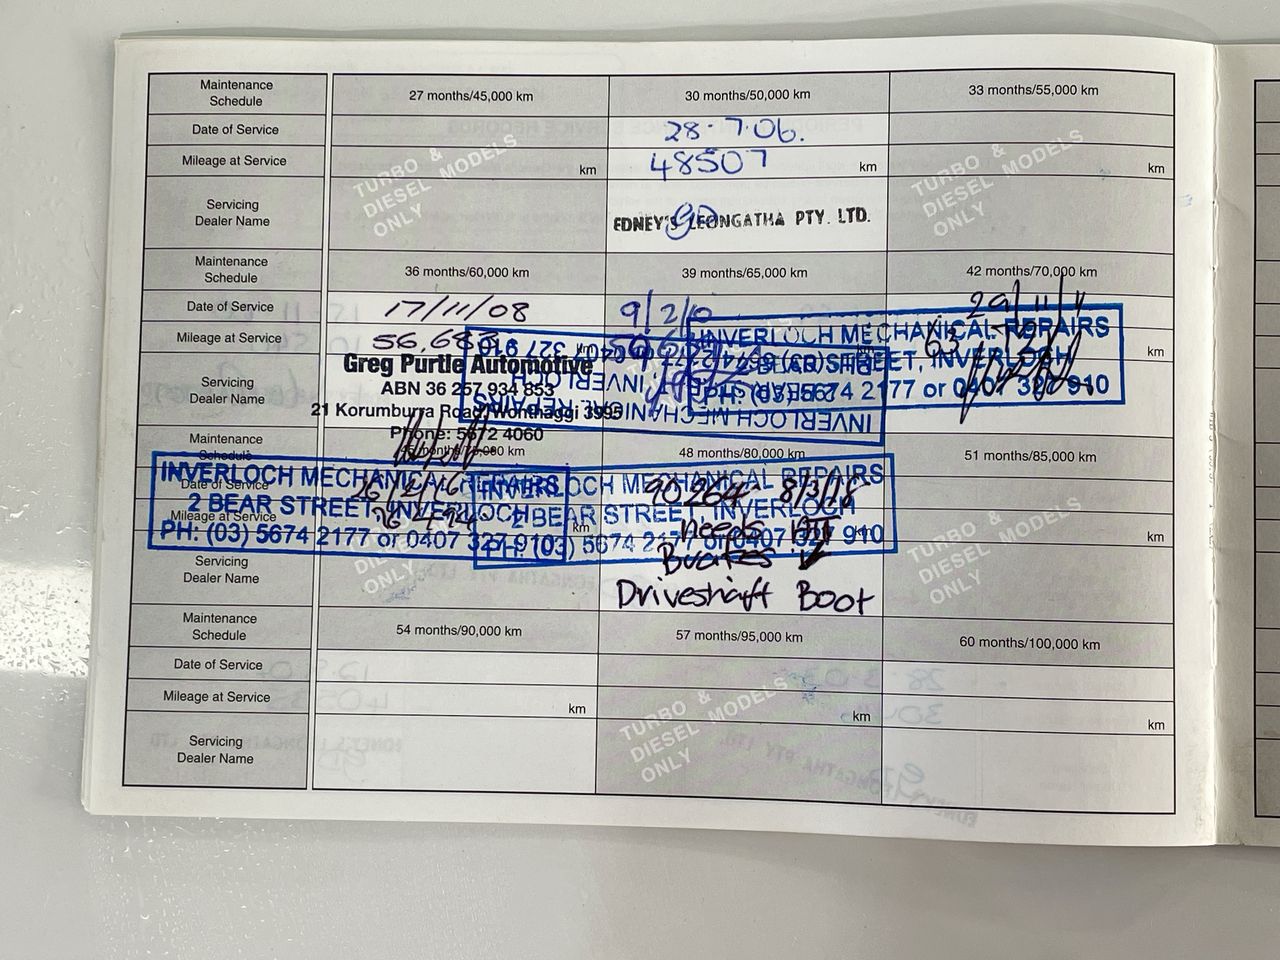 Maintenance Schedule 27 months/45,000 km 30 months/50,000 km 33 months/55,000 km
Date of Service 28.7.06.
Mileage at Service km 48507 km km
TURBO & DIESEL MODELS ONLY
TURBO & DIESEL MODELS ONLY
Servicing Dealer Name EDNEY'S LEONGATHA PTY. LTD.
Maintenance Schedule 36 months/60,000 km 39 months/65,000 km 42 months/70,000 km
Date of Service 17/11/08 9/2/10 29/11/11
Mileage at Service km
Servicing Dealer Name
Greg Purtle Automotive
ABN 36 257 934 853
21 Korumburra Road, Wonthaggi 3995
Phone: 5672 4060
INVERLOCH MECHANICAL REPAIRS
2 BEAR STREET, INVERLOCH
PH: (03) 5674 2177 or 0407 327 910
INVERLOCH MECHANICAL REPAIRS
2 BEAR STREET, INVERLOCH
PH: (03) 5674 2177 or 0407 327 910
Maintenance Schedule 48 months/80,000 km 51 months/85,000 km
Date of Service 26/2/16 90264 8/3/18
Mileage at Service km km
Servicing Dealer Name
INVERLOCH MECHANICAL REPAIRS
2 BEAR STREET, INVERLOCH
PH: (03) 5674 2177 or 0407 327 910
INVERLOCH MECHANICAL REPAIRS
2 BEAR STREET, INVERLOCH
PH: (03) 5674 2177 or 0407 327 910
Needs
Driveshaft Boot
TURBO & DIESEL MODELS ONLY
Maintenance Schedule 54 months/90,000 km 57 months/95,000 km 60 months/100,000 km
Date of Service
Mileage at Service km km km
Servicing Dealer Name
TURBO & DIESEL MODELS ONLY